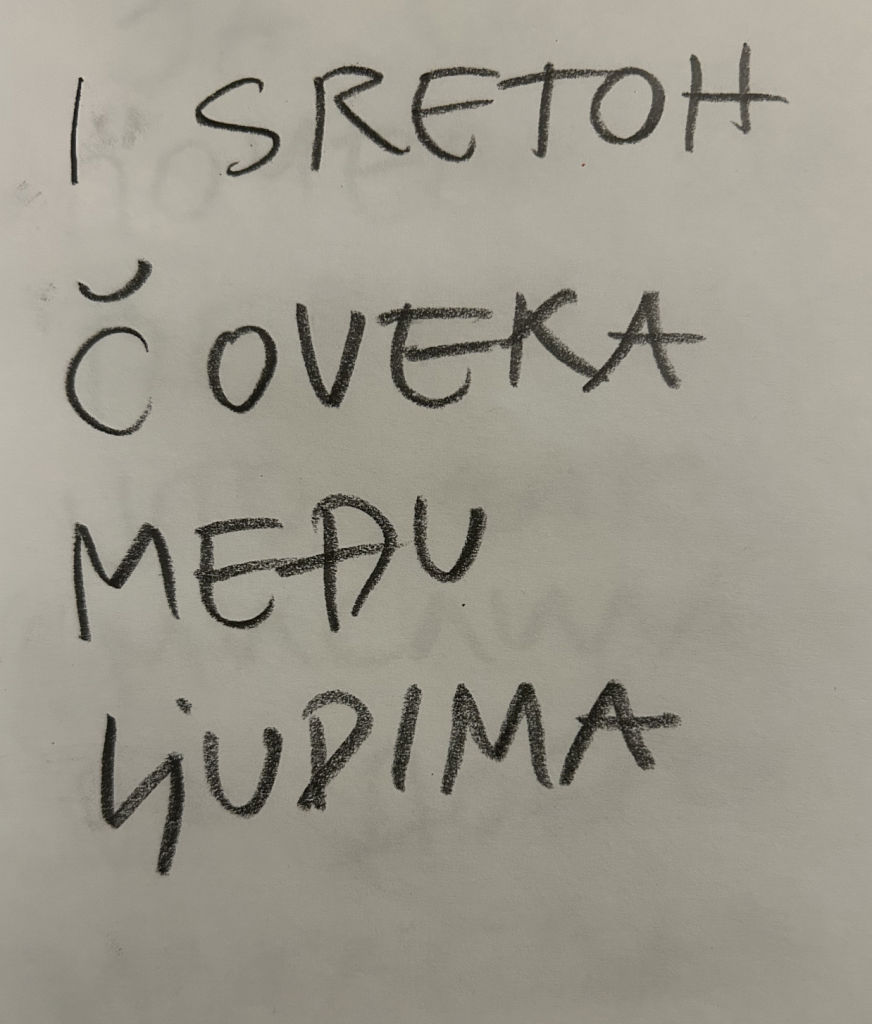 I SRETOH
ČOVEKA
MEĐU
LJUDIMA